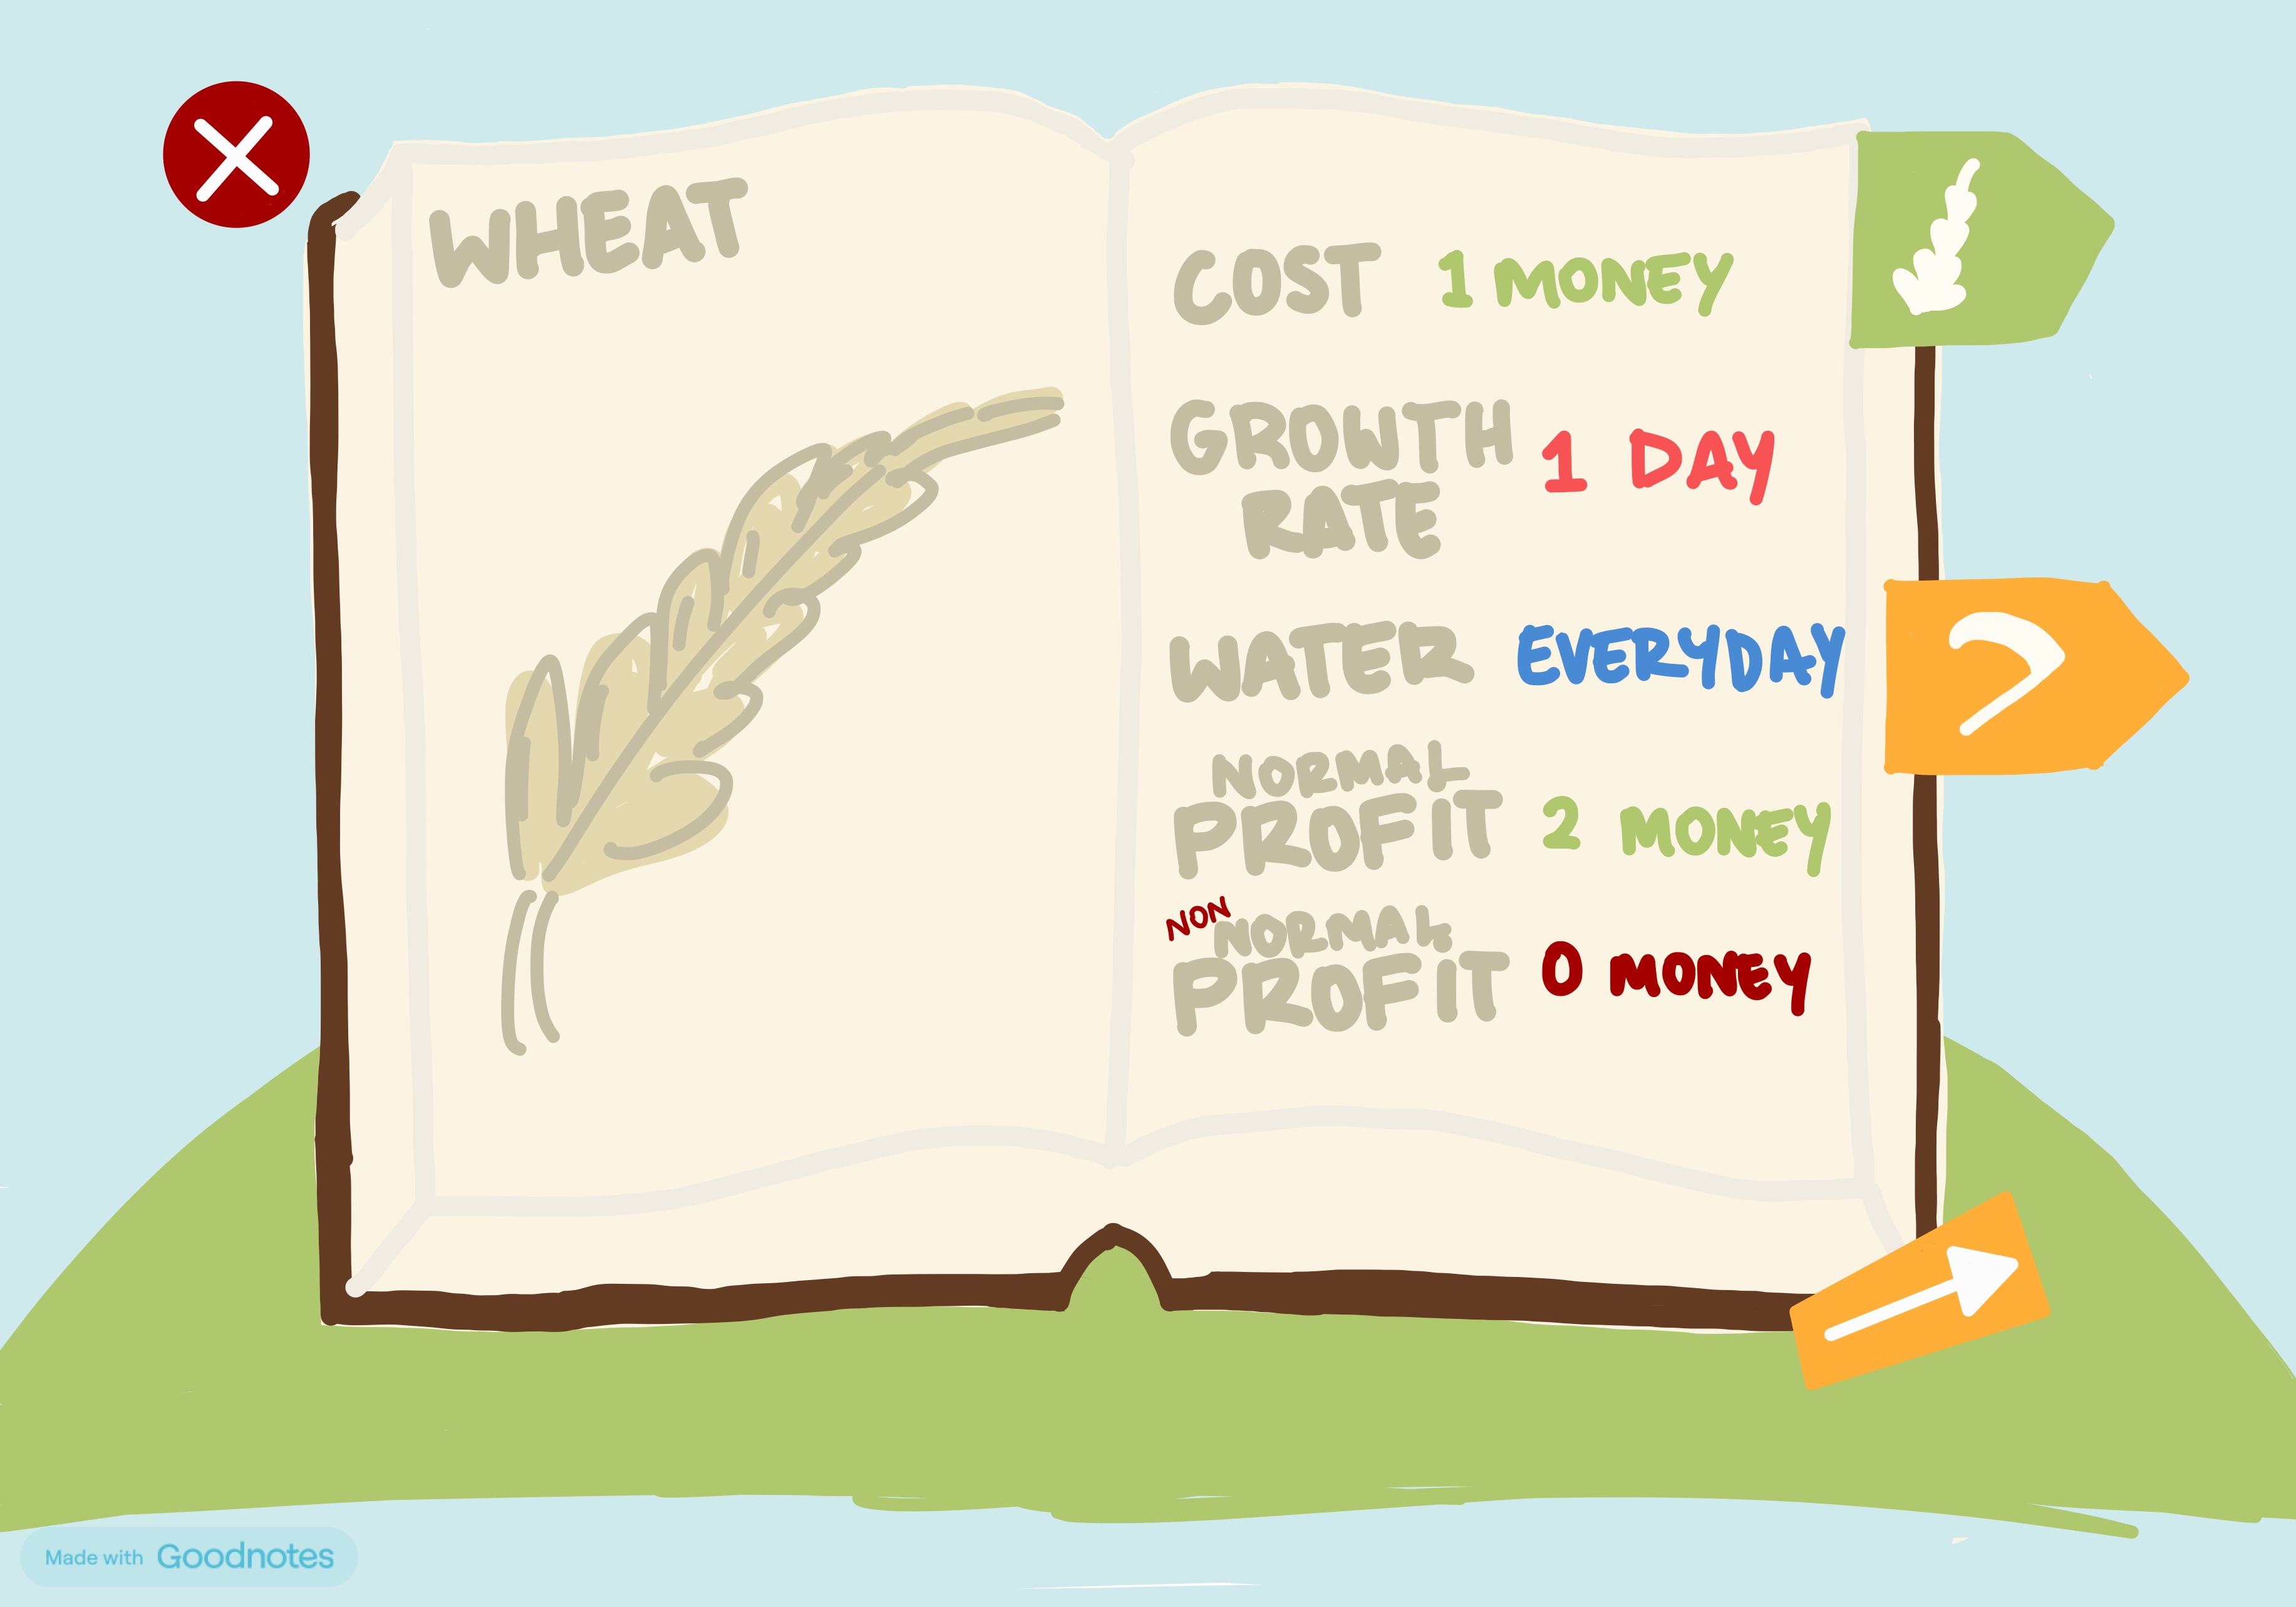 WHEAT
COST 1 MONEY
GROWTH RATE 1 DAY
WATER EVERYDAY
NORMAL PROFIT 2 MONEY
NON NORMAL PROFIT 0 MONEY
Made with Goodnotes